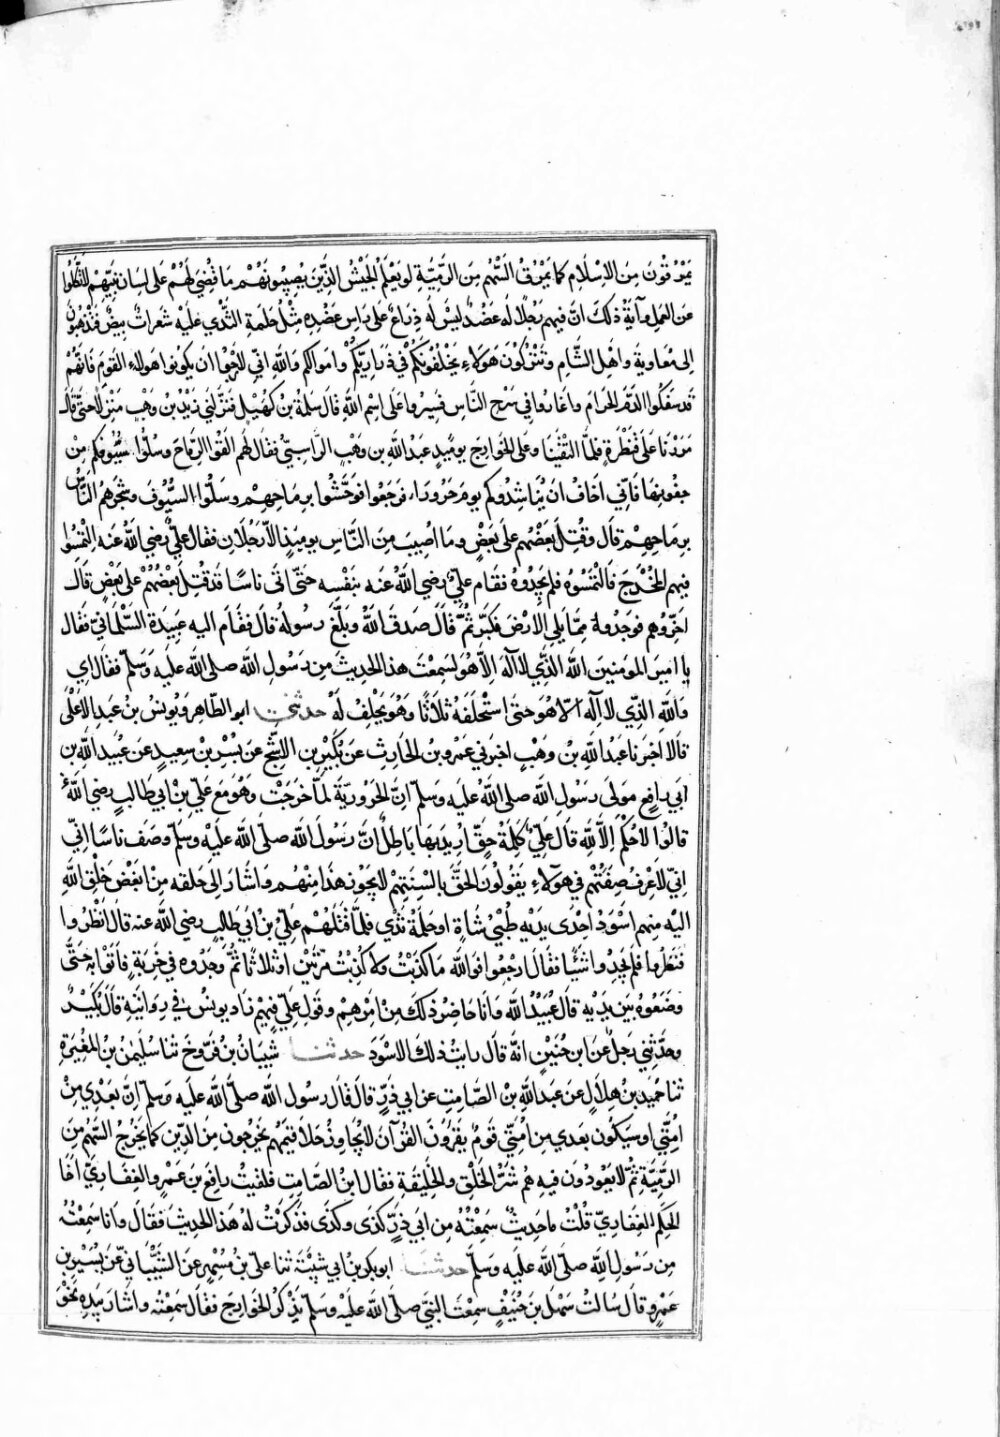 يمرقون من الاسلام كما يمرق السهم من الرمية لو يعلم الجيش الذين يصيبونهم ما قضي لهم على لسان نبيهم لاتكلوا
عن العمل وآية ذلك ان فيهم رجلا له عضد ليس له ذراع على راس عضده مثل حلمة الثدي عليه شعرات بيض فتذهبون
الى معاوية واهل الشام وتتركون هولاء يخلفونكم في ذراريكم واموالكم والله اني لارجوا ان يكونوا هولاء القوم فانهم
قد سفكوا الدم الحرام واغاروا في سرح الناس فسيروا على اسم الله قال سلمة بن كهيل فنزلني زيد بن وهب منزلا حتى قال
مررنا على قنطرة فلما التقينا وعلى الخوارج يوميد عبد الله بن وهب الراسبي فقال لهم القوا الرماح وسلوا سيوفكم من
جفونها فاني اخاف ان يناشدوكم يوم حرورا، فرجعوا فوحشوا برماحهم وسلوا السيوف وشجرهم الناس
برماحهم قال وقتل بعضهم على بعض وما اصيب من الناس يوميذ الا رجلان فقال علي رضي الله عنه التمسوا
فيهم المخدج فالتمسوه فلم يجدوه فقام علي رضي الله عنه بنفسه حتى اتى ناسا قد قتل بعضهم على بعض قال
اخروهم فوجدوه مما يلي الارض فكبر ثم قال صدق الله وبلغ رسوله قال فقام اليه عبيدة السلماني فقال
يا امير المومنين الله الذي لا اله الا هو لسمعت هذا الحديث من رسول الله صلى الله عليه وسلم فقال اي
والله الذي لا اله الا هو حتى استحلفه ثلاثا وهو يحلف له حدثني ابو الطاهر ويونس بن عبد الاعلى
قالا اخبرنا عبد الله بن وهب اخبرني عمرو بن الحارث عن بكير بن الاشج عن بسر بن سعيد عن عبيد الله بن
ابي رافع مولى رسول الله صلى الله عليه وسلم ان الحرورية لما خرجت وهو مع علي بن ابي طالب رضي الله
قالوا لا حكم الا لله قال علي كلمة حق اريد بها باطل ان رسول الله صلى الله عليه وسلم وصف ناسا اني
اني لاعرف صفتهم في هولاء يقولون الحق بالسنتهم لا يجوز هذا منهم واشار الى حلقه من ابغض خلق الله
اليه منهم اسود احدى يديه طبي شاة او حلمة ثدي فلما قتلهم علي بن ابي طالب رضي الله عنه قال انظروا
فنظروا فلم يجدوا شيا فقال ارجعوا فوالله ما كذبت ولا كذبت مرتين او ثلاثا ثم وجدوه في خربة فاتوا به حتى
وضعوه بين يديه قال عبيد الله وانا حاضر ذلك من امرهم وقول علي فيهم زاد يونس في روايته قال بكير
وحدثني رجل عن ابن حنين انه قال رايت ذلك الاسود حدثنا شيبان بن فروخ ثنا سليمن بن المغيرة
ثنا حميد بن هلال عن عبد الله بن الصامت عن ابي ذر قال قال رسول الله صلى الله عليه وسلم ان بعدي من
امتي او سيكون بعدي من امتي قوم يقرون القرآن لا يجاوز حلاقيمهم يخرجون من الدين كما يخرج السهم من
الرمية ثم لا يعودون فيه هم شر الخلق والخليقة فقال ابن الصامت فلقيت رافع بن عمرو الغفاري اخا
الحكم الغفاري قلت ما حديث سمعته من ابي ذر كذى وكذى فذكرت له هذا الحديث فقال وانا سمعته
من رسول الله صلى الله عليه وسلم حدثنا ابو بكر بن ابي شيبة ثنا علي بن مسهر عن الشيباني عن يسير بن
عمرو قال سالت سهل بن حنيف سمعت النبي صلى الله عليه وسلم يذكر الخوارج فقال سمعته واشار بيده نحو